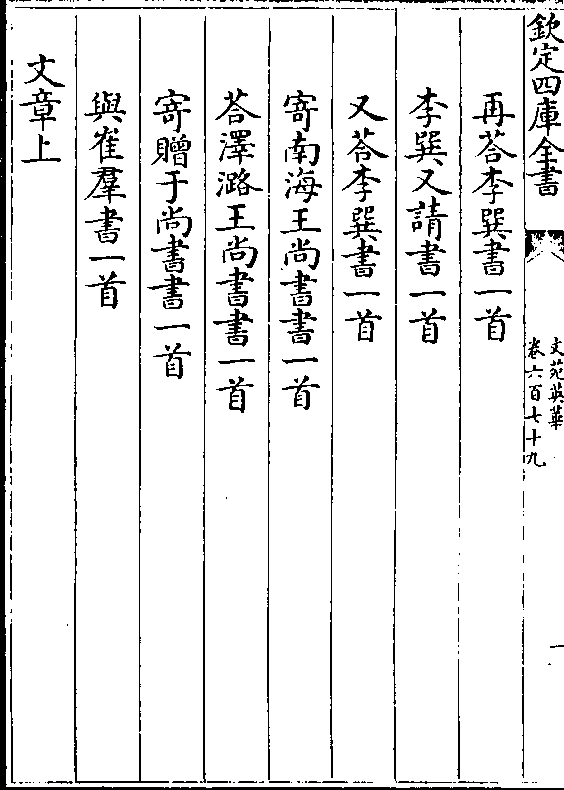 欽定四庫全書
文苑英華
卷六百七十九
一
再荅李巽書一首
李巽又請書一首
又荅李巽書一首
寄南海王尚書書一首
荅澤潞王尚書書一首
寄贈于尚書書一首
與崔羣書一首
文章上